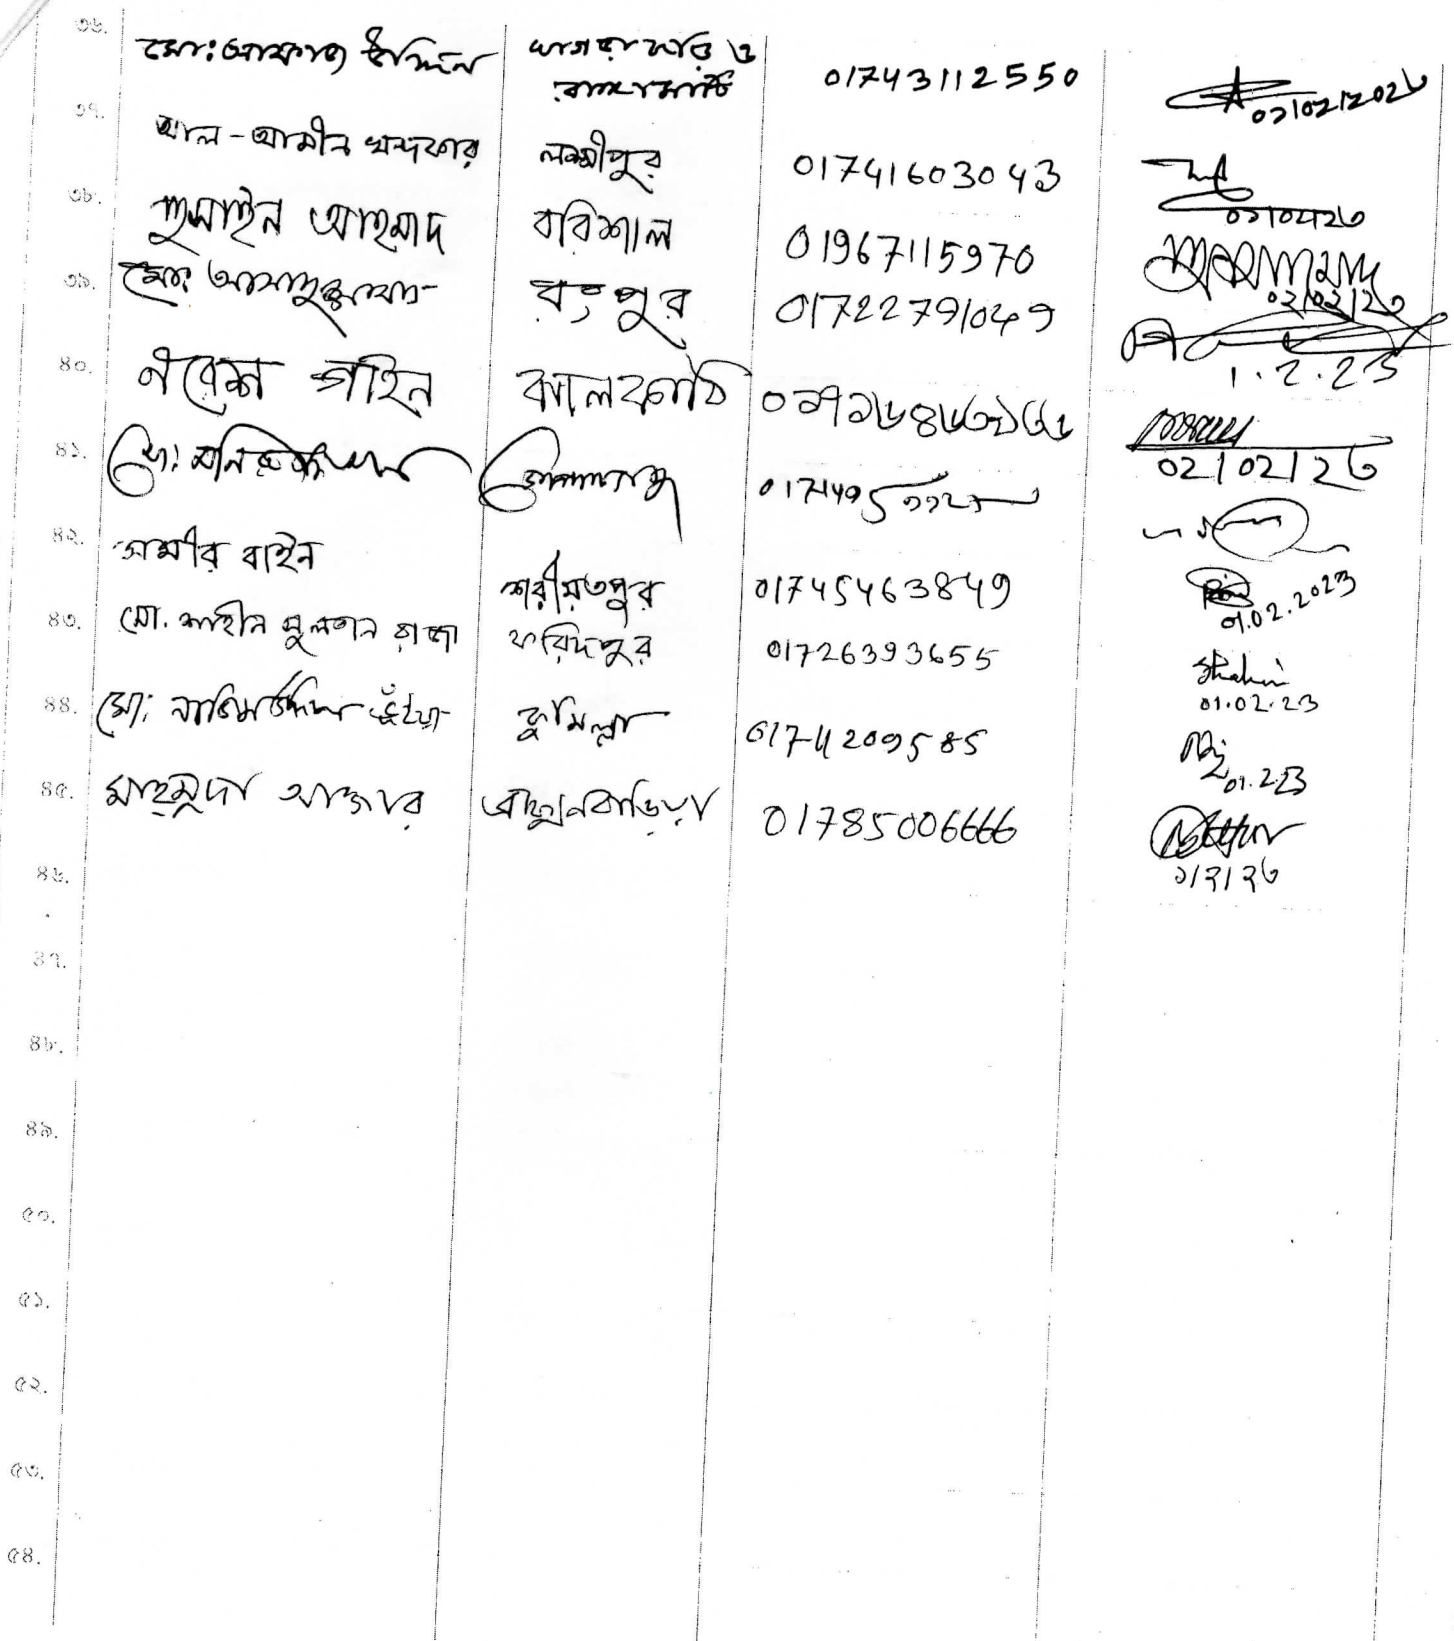 ৩৬. মো: আফাজ উদ্দিন খাগড়াছড়ি ও 01743112550
রাঙ্গামাটি 02/02/202৩
৩৭. আল-আমীন খন্দকার লক্ষ্মীপুর 01741603043
০১/০২/২৩
৩৮. হুসাইন আহমাদ বরিশাল 01967115970
০২/০২/২৩
৩৯. মো: আসাদুজ্জামান রংপুর 01722791049
1.2.23
৪০. নরেশ গাইন ঝালকাঠি
02/02/2৩
৪১. মো: মনিরুজ্জামান গোপালগঞ্জ
৪২. সমীর বাইন শরীয়তপুর 01745463849
01.02.2023
৪৩. মো. শাহীন সুলতান রাজা ফরিদপুর 01726393655
Shahin
01.02.23
৪৪. মো: নাজিমউদ্দিন ভূঁইয়া কুমিল্লা 01741209585
01.2.23
৪৫. মাহমুদা আক্তার ব্রাহ্মণবাড়িয়া 01785006666
১/২/২৩
৪৬.
৪৭.
৪৮.
৪৯.
৫০.
৫১.
৫২.
৫৩.
৫৪.